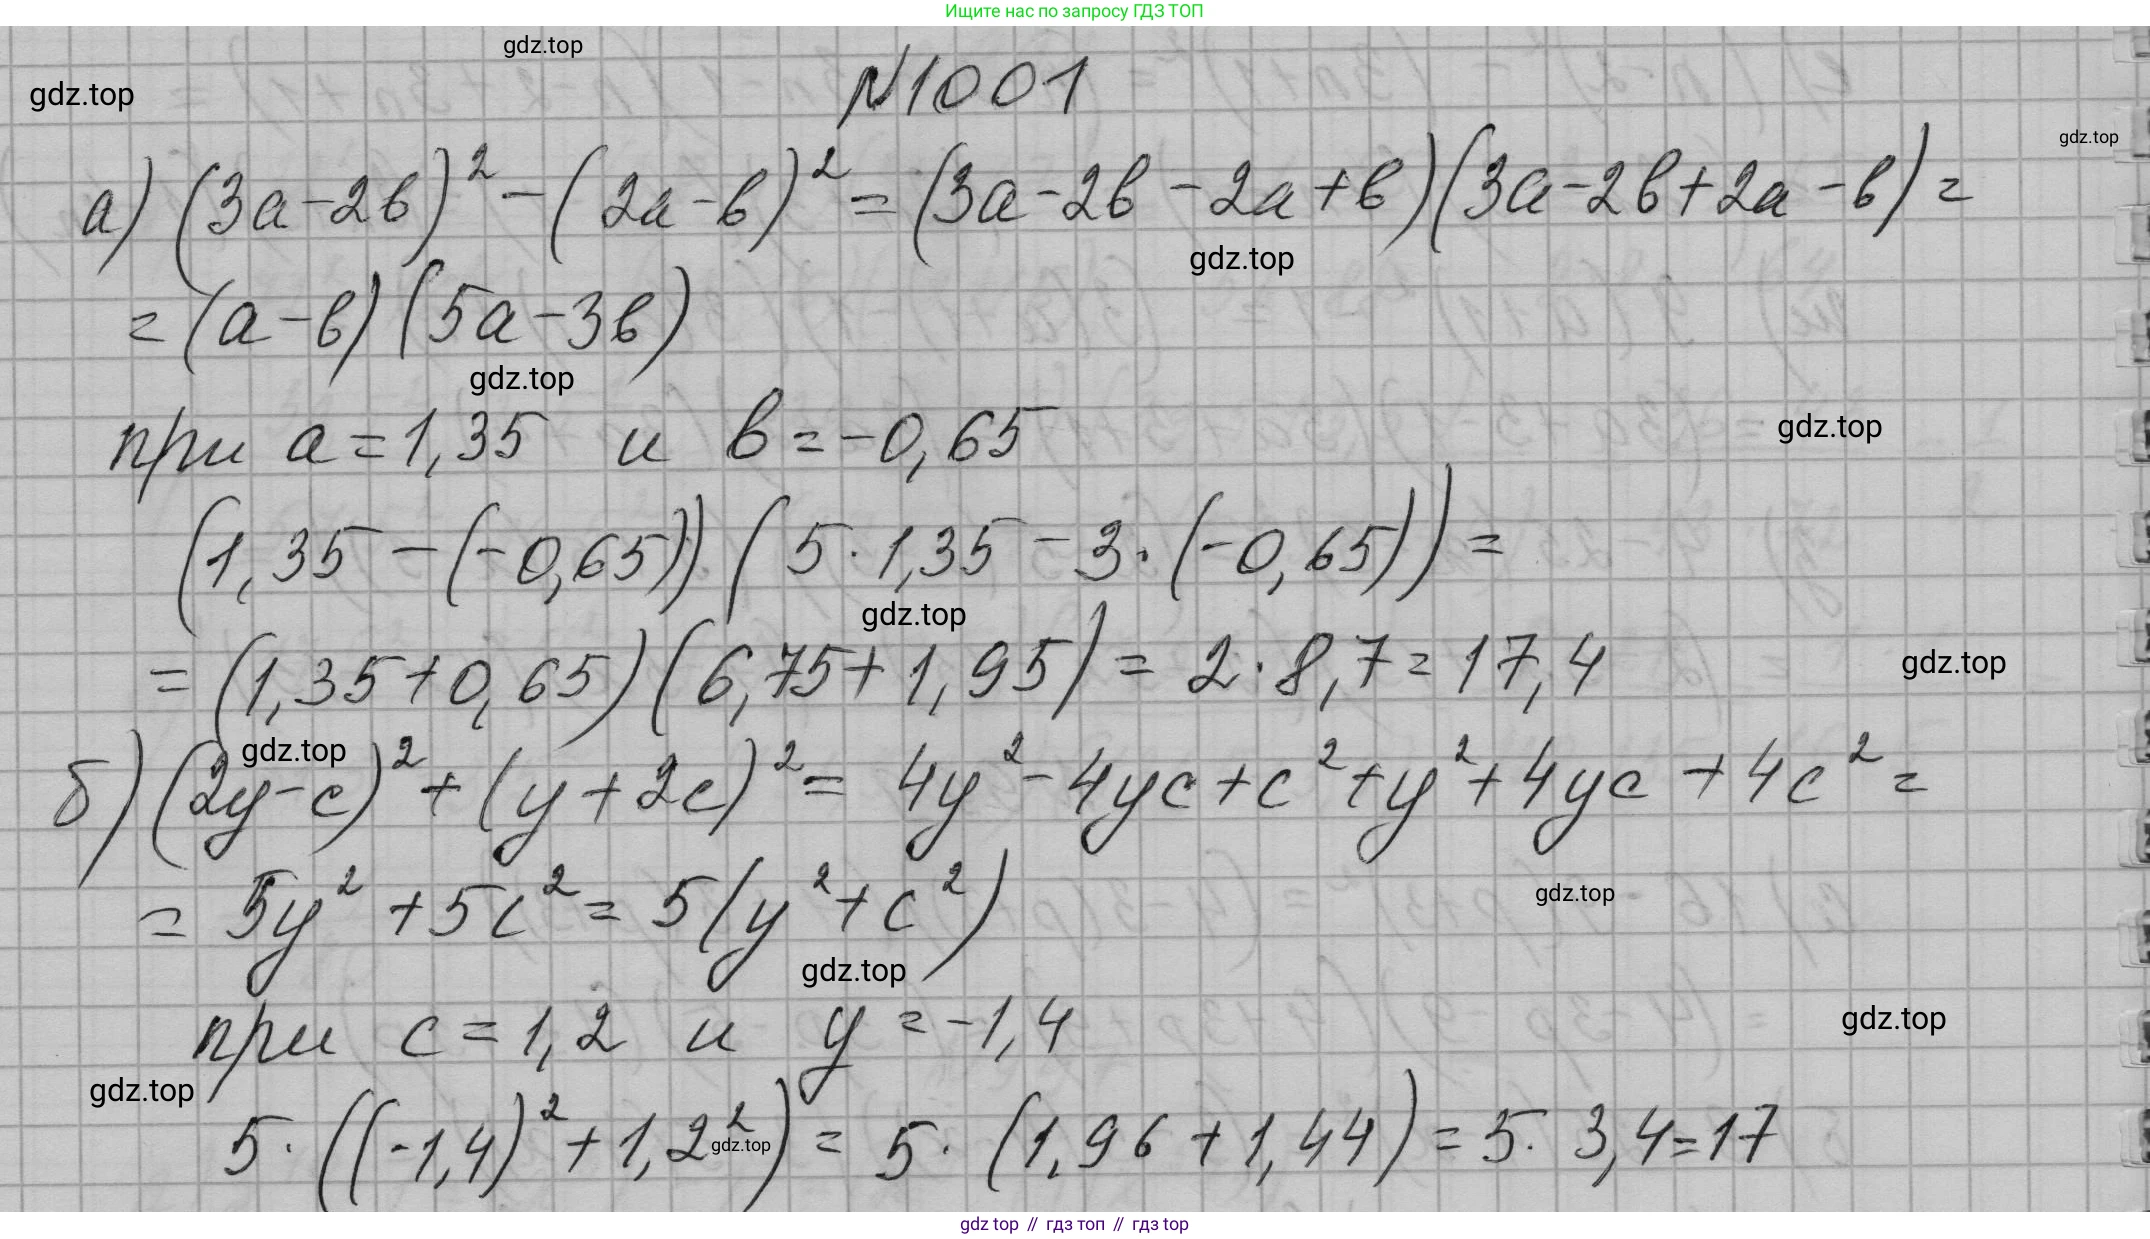 Ищите нас по запросу ГДЗ ТОП
gdz.top
gdz.top
№1001
gdz.top
а) (3а-2в)² - (2а-в)² = (3а-2в-2а+в)(3а-2в+2а-в) =
gdz.top
= (а-в)(5а-3в)
gdz.top
при а=1,35 и в=-0,65
gdz.top
(1,35-(-0,65))(5·1,35-3·(-0,65)) =
gdz.top
= (1,35+0,65)(6,75+1,95) = 2·8,7=17,4
gdz.top
gdz.top
б) (2у-с)²+(у+2с)² = 4у²-4ус+с²+у²+4ус+4с² =
= 5у²+5с² = 5(у²+с²)
gdz.top
gdz.top
при с=1,2 и у=-1,4
gdz.top
gdz.top
5·((-1,4)²+1,2²) = 5·(1,96+1,44) = 5·3,4=17
gdz.top
gdz top // гдз топ // гдз top